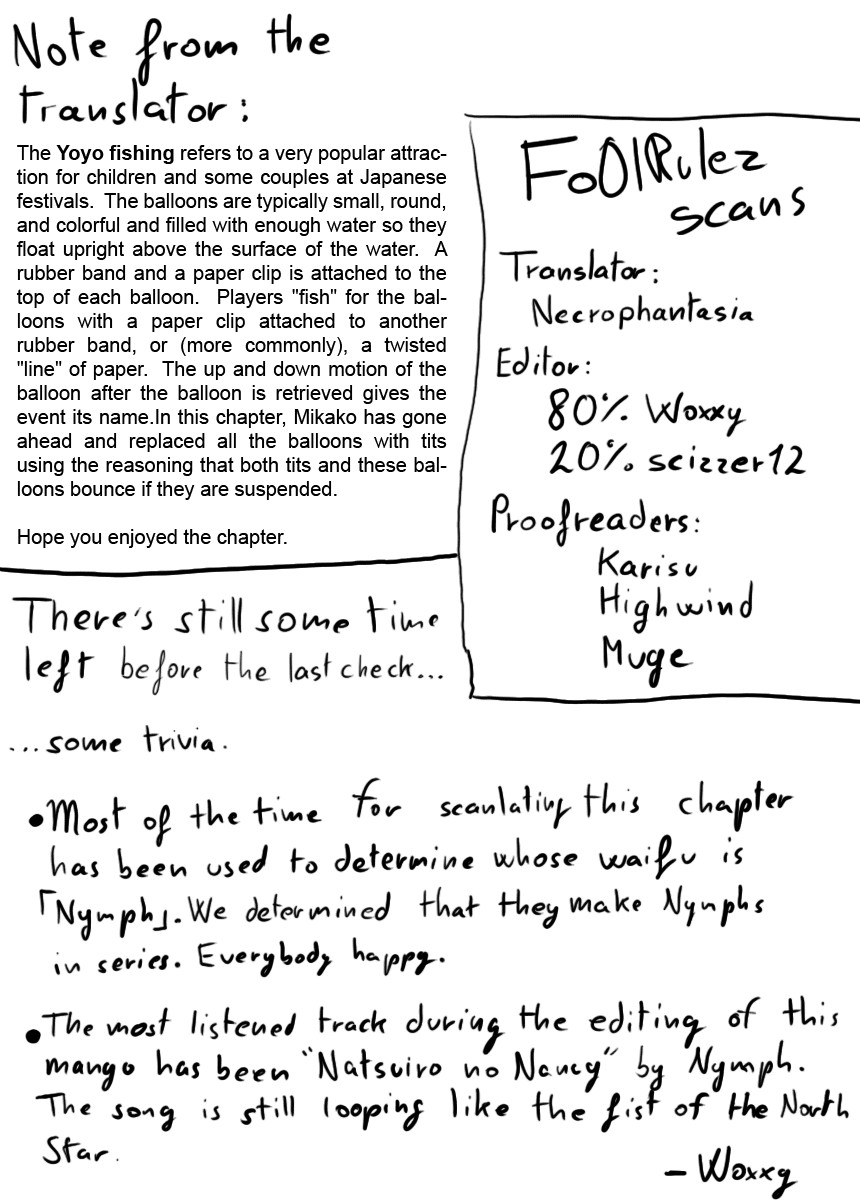 Note from the
translator:
The Yoyo fishing refers to a very popular attrac-
tion for children and some couples at Japanese
festivals.  The balloons are typically small, round,
and colorful and filled with enough water so they
float upright above the surface of the water.  A
rubber band and a paper clip is attached to the
top of each balloon.  Players "fish" for the bal-
loons with a paper clip attached to another
rubber band, or (more commonly), a twisted
"line" of paper.  The up and down motion of the
balloon after the balloon is retrieved gives the
event its name.In this chapter, Mikako has gone
ahead and replaced all the balloons with tits
using the reasoning that both tits and these bal-
loons bounce if they are suspended.
Hope you enjoyed the chapter.
FoOlRulez
scans
Translator:
Necrophantasia
Editor:
80% Woxxy
20% scizzer12
Proofreaders:
Karisu
Highwind
Muge
There's still some time
left before the last check...
...some trivia.
•Most of the time for scanlating this chapter
has been used to determine whose waifu is
「Nymph」. We determined that they make Nymphs
in series. Everybody happy.
•The most listened track during the editing of this
mango has been "Natsuiro no Nancy" by Nymph.
The song is still looping like the fist of the North
Star.
- Woxxy